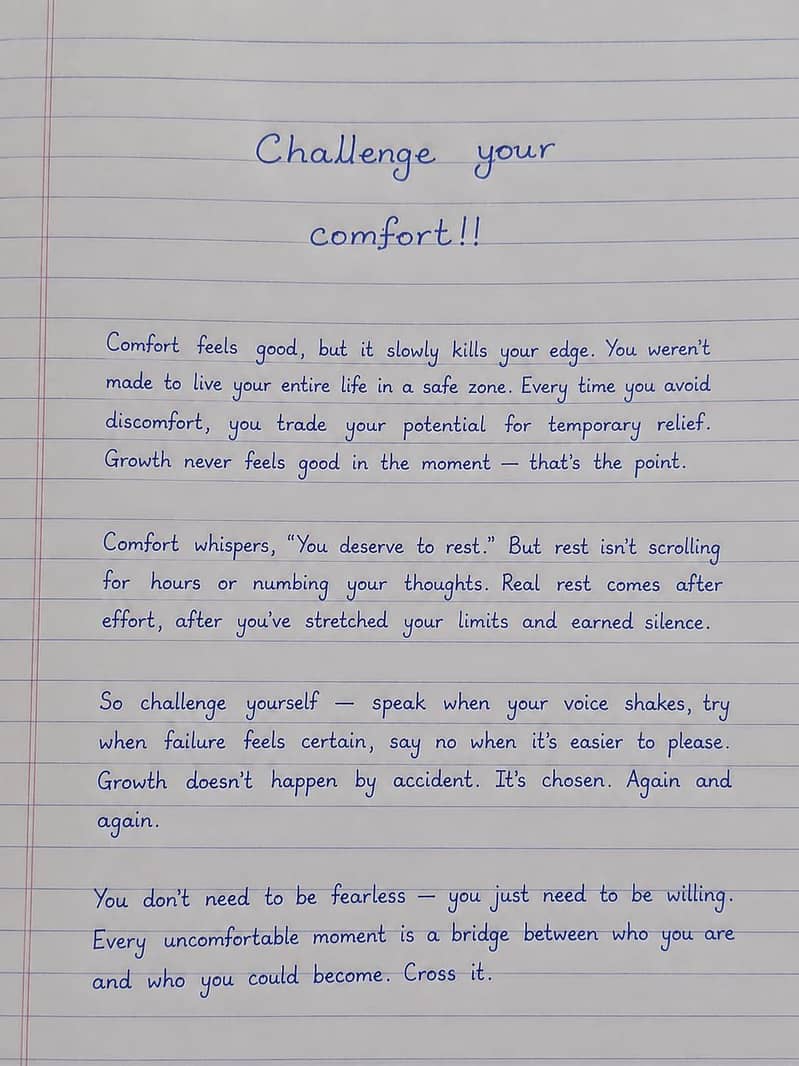 Challenge your
comfort!!
Comfort feels good, but it slowly kills your edge. You weren't
made to live your entire life in a safe zone. Every time you avoid
discomfort, you trade your potential for temporary relief.
Growth never feels good in the moment — that's the point.
Comfort whispers, “You deserve to rest.” But rest isn't scrolling
for hours or numbing your thoughts. Real rest comes after
effort, after you've stretched your limits and earned silence.
So challenge yourself — speak when your voice shakes, try
when failure feels certain, say no when it's easier to please.
Growth doesn't happen by accident. It's chosen. Again and
again.
You don't need to be fearless — you just need to be willing.
Every uncomfortable moment is a bridge between who you are
and who you could become. Cross it.